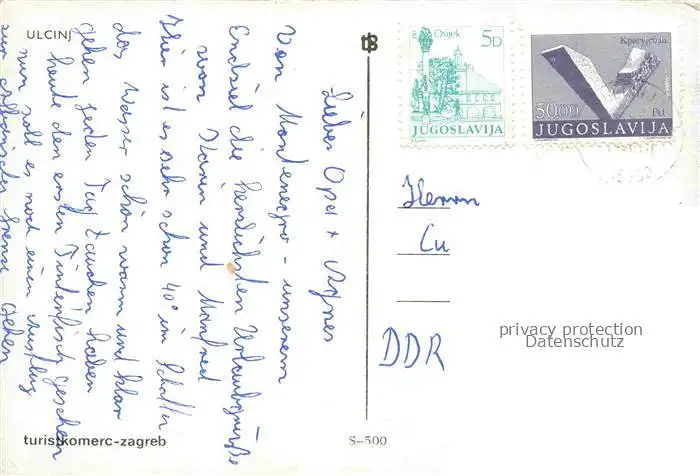 ULCINJ
Lieber Opa + Agnes
Von Montenegro - unserem
Endziel die herzlichsten Urlaubsgrüße
von Karin und Manfred
Hier ist es sehr schön 40° im Schatten
das Wasser schön warm und klar
gehen jeden Tag tauchen haben
heute den ersten Tintenfisch gesehen
nun soll es noch einen Ausflug
zur Grenze gehen
turistkomerc-zagreb
S-500
Osijek
5D
JUGOSLAVIJA
Крагујевац
50.00
JUGOSLAVIJA
Herrn
Cu
DDR
privacy protection
Datenschutz